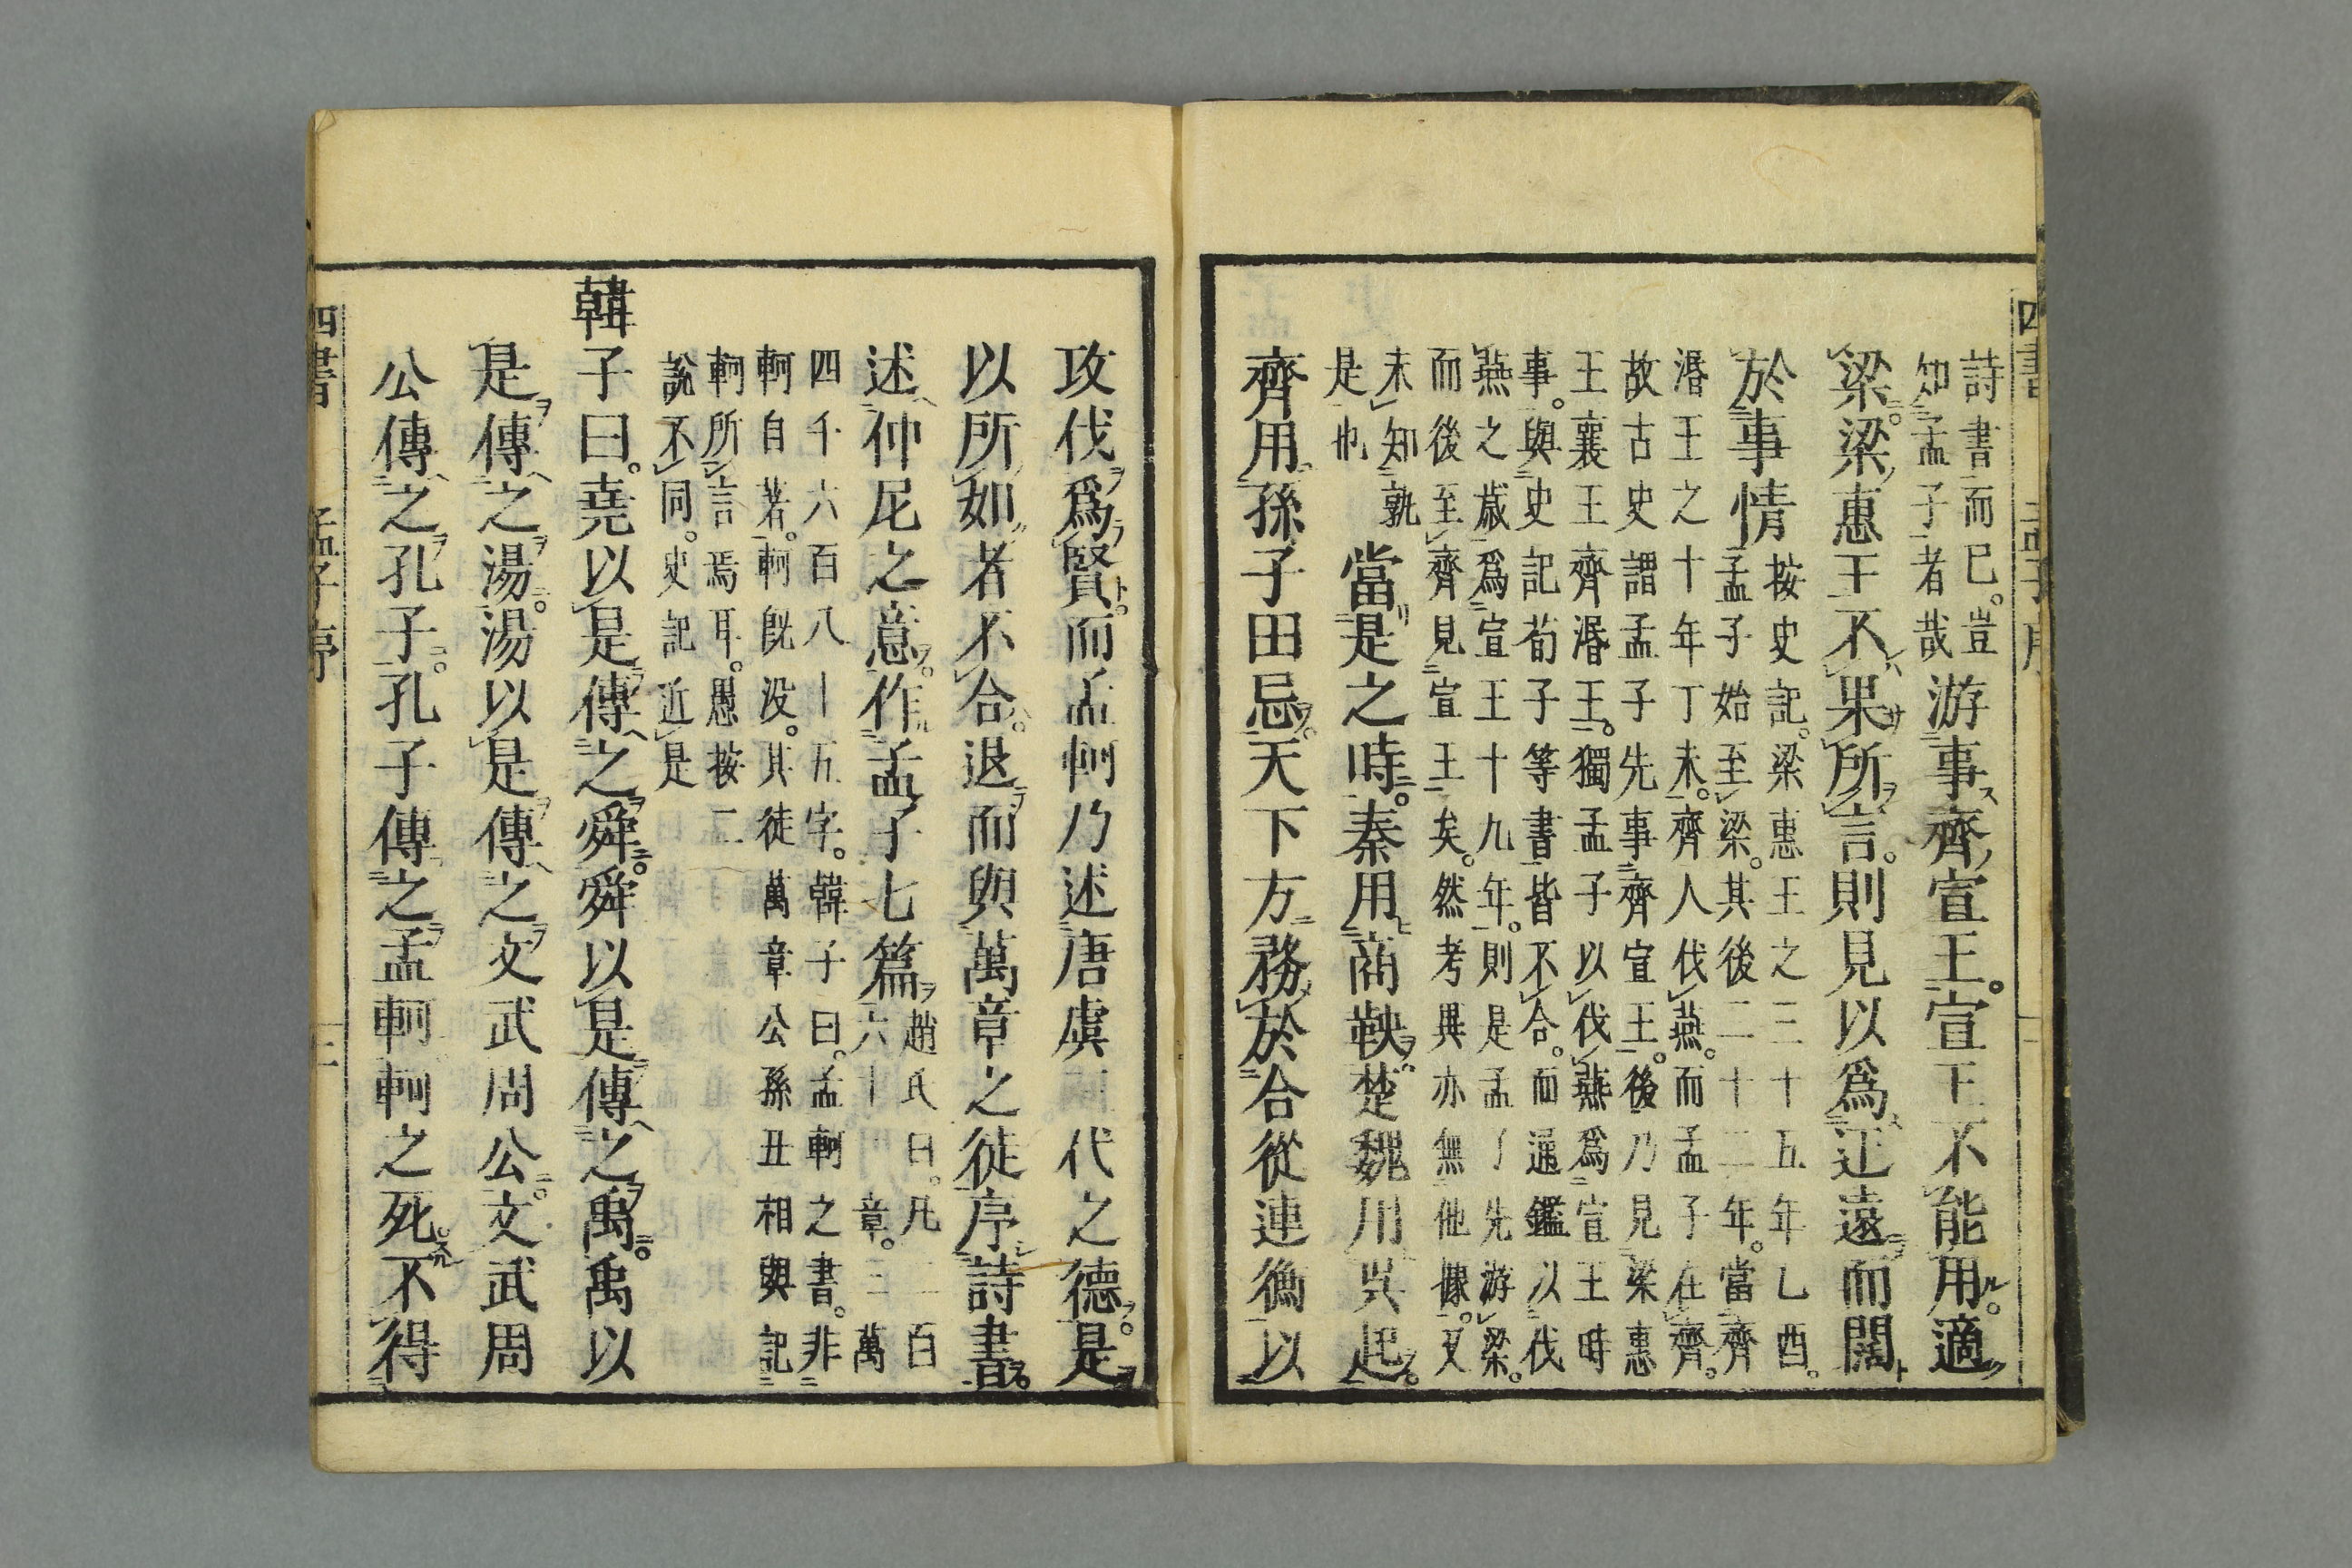 詩書而已。豈
知孟子者哉
游事齊宣王。宣王不能用。適
梁。梁惠王不果所言。則見以爲迂遠而闊
於事情
按史記。梁惠王之三十五年乙酉。
孟子始至梁。其後二十二年。當齊
湣王之十年丁未。齊人伐燕。而孟子在齊。
故古史謂孟子先事齊宣王。後乃見梁惠
王襄王齊湣王。獨孟子以伐燕爲宣王時
事。與史記荀子等書皆不合。而通鑑以伐
燕之歲爲宣王十九年。則是孟子先游梁。
而後至齊見宣王矣。然考異亦無他據。又
未知孰
是也
當是之時。秦用商鞅楚魏用吳起。
齊用孫子田忌。天下方務於合從連衡以
攻伐爲賢。而孟軻乃述唐虞三代之德。是
以所如者不合。退而與萬章之徒序詩書。
述仲尼之意。作孟子七篇
趙氏曰。凡二百
六十一章。三萬
四千六百八十五字。韓子曰。孟軻之書。非
軻自著。軻既没。其徒萬章公孫丑相與記
軻所言焉耳。愚按二
說不同。史記近是
韓子曰。堯以是傳之舜。舜以是傳之禹。禹以
是傳之湯。湯以是傳之文武周公。文武周
公傳之孔子。孔子傳之孟軻軻之死。不得
四書 孟子序 三